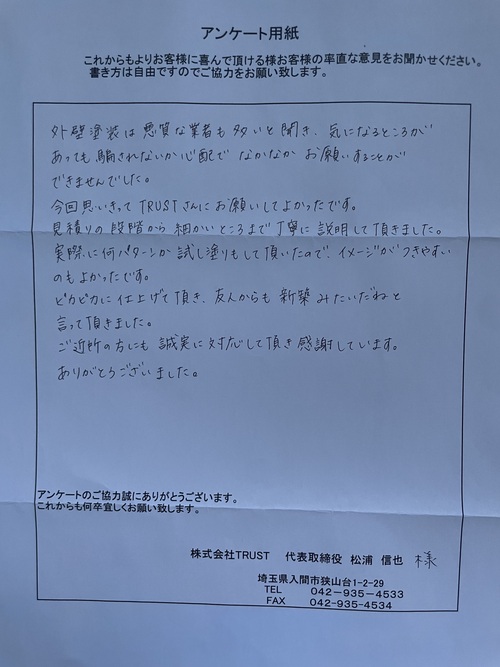 アンケート用紙
これからもよりお客様に喜んで頂ける様お客様の率直な意見をお聞かせください。
書き方は自由ですのでご協力をお願い致します。
外壁塗装は悪質な業者も多いと聞き、気になるところが
あっても騙されないか心配で なかなか お願いすることが
できませんでした。
今回思いきって TRUSTさんにお願いしてよかったです。
見積りの段階から細かいところまで丁寧に説明して頂きました。
実際に何パターンか試し塗りもして頂いたので、イメージがつきやすい
のもよかったです。
ピカピカに仕上げて頂き、友人からも 新築みたいだねと
言って頂きました。
ご近所の方にも 誠実に対応して頂き感謝しています。
ありがとうございました。
アンケートのご協力誠にありがとうございます。
これからも何卒宜しくお願い致します。
株式会社TRUST 代表取締役 松浦 信也 様
埼玉県入間市狭山台1-2-29
TEL 042-935-4533
FAX 042-935-4534